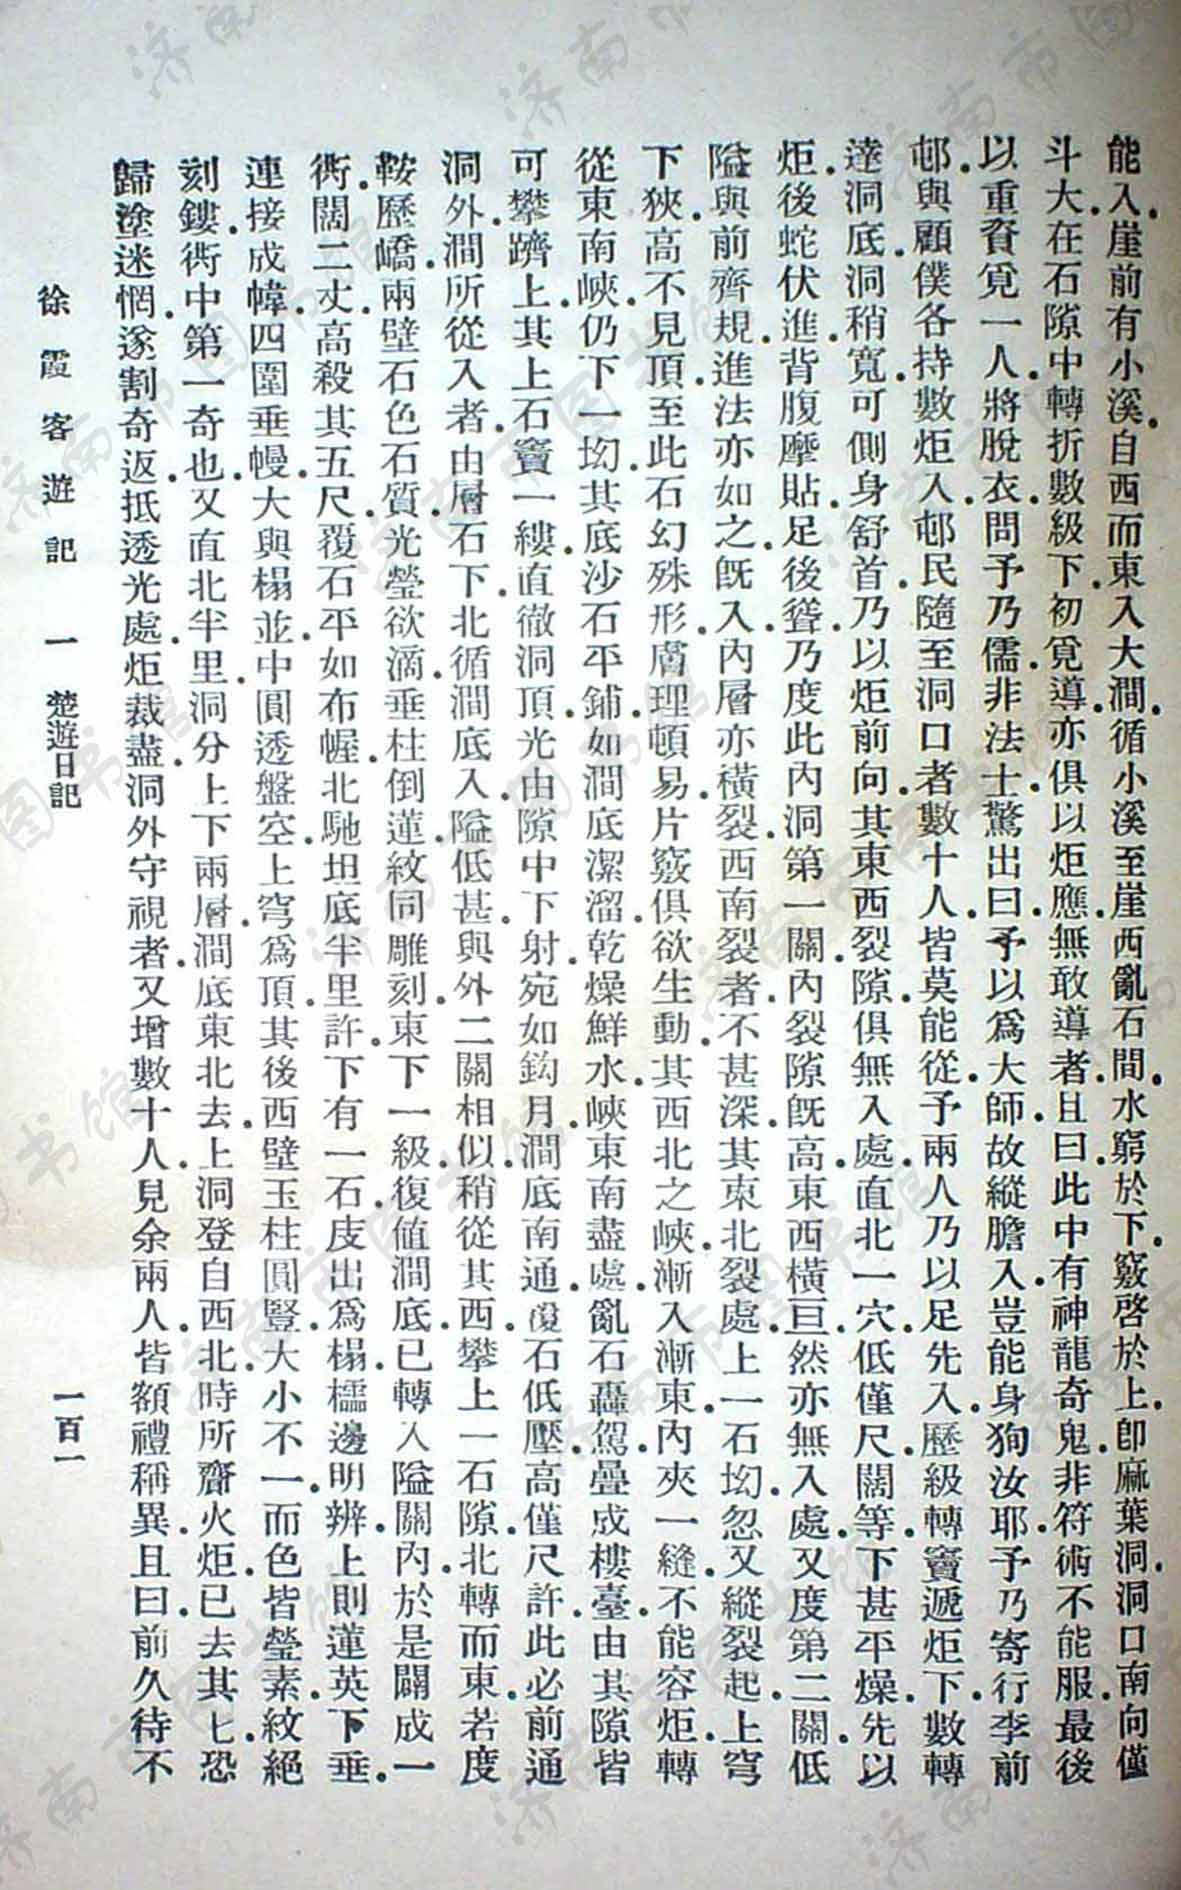 能入.崖前有小溪.自西而東.入大澗.循小溪至崖.西亂石間.水窮於下.竅啓於上.卽麻葉洞.洞口南向.僅
斗大.在石隙中.轉折數級下.初覓導.亦俱以炬應.無敢導者.且曰.此中有神龍奇鬼.非符術不能服.最後
以重資覓一人.將脫衣.問予乃儒非法士.驚出曰.予以爲大師.故縱膽入.豈能身狥汝耶.予乃寄行李前
邨.與顧僕各持數炬入.邨民隨至洞口者數十人.皆莫能從.予兩人乃以足先入.歷級轉竇.遞炬下.數轉
達洞底.洞稍寬.可側身舒首.乃以炬前向.其東西裂隙.俱無入處.直北一穴.低僅尺闊等.下甚平燥.先以
炬.後蛇伏進.背腹摩貼.足後聳.乃度此內洞第一關.內裂隙旣高.東西橫亘.然亦無入處.又度第二關.低
隘與前齊.規進法亦如之.旣入.內層亦橫裂.西南裂者.不甚深.其東北裂處.上一石坳.忽又縱裂起.上穹
下狹.高不見頂.至此石幻殊形.膚理頓易.片竅俱欲生動.其西北之峽.漸入漸東.內夾一縫.不能容炬.轉
從東南峽.仍下一坳.其底沙石平鋪.如澗底潔溜.乾燥鮮水.峽東南盡處.亂石轟駕.疊成樓臺.由其隙皆
可攀躋上.其上石竇一縷.直徹洞頂.光由隙中下射.宛如鈎月.澗底南通.覆石低壓.高僅尺許.此必前通
洞外.澗所從入者.由層石下.北循澗底入.隘低甚.與外二關相似.稍從其西.攀上一石隙.北轉而東.若度
鞍歷嶠.兩壁石色石質.光瑩欲滴.垂柱倒蓮.紋同雕刻.東下一級.復値澗底.已轉入隘關內.於是闢成一
衖.闊二丈.高殺其五尺.覆石平如布幄.北馳坦底半里許.下有一石.庋出爲榻.檽邊明辨.上則蓮英下垂.
連接成幃.四圍垂幔.大與榻並.中圓透盤空.上穹爲頂.其後西壁.玉柱圓豎.大小不一.而色皆瑩素.紋絕
刻鏤.衖中第一奇也.又直北半里.洞分上下兩層.澗底東北去.上洞登自西北.時所齎火炬.已去其七.恐
歸塗迷惘.遂割奇返.抵透光處.炬裁盡.洞外守視者.又增數十人.見余兩人.皆額禮稱異.且曰.前久待不
徐霞客遊記 一 楚遊日記 一百一